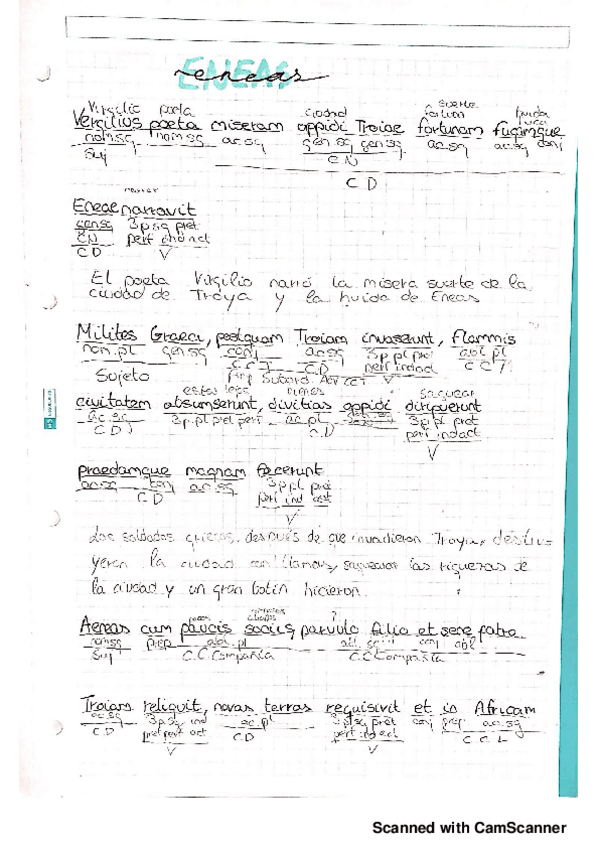 ENEAS
eneas
Virgilio poeta ciudad suerte huida
Vergilius poeta miseram oppidi Troiae fortunam fugamque
nom.sg nom.sg ac.sg gen.sg gen.sg ac.sg ac.sg conj
Suj CN
CD
narrar
Eneae narravit
gen sg 3p sg pret
CN perf ind act
CD V
El poeta Virgilio narró la misera suerte de la
ciudad de Troya y la huida de Eneas
Milites Graeci, postquam Troiam invaserunt, flammis
nom.pl gen sg conj ac.sg 3p pl pret abl pl
CCT CD perf ind act CCI
Sujeto V
saquear
civitatem absumserunt, divitias oppidi diripuerunt
ac.sg 3p.pl pret perf ac.pl 3p pl pret
CD CD perf ind act
V
praedamque magnam fecerunt
ac.sg conj ac.sg 3p pl pret
CD perf ind act
V
Los soldados griegos, después de que invadieron Troya, destru-
yeron la ciudad con llamas, saquearon las riquezas de
la ciudad y un gran botín hicieron.
?
Aeneas cum paucis sociis, parvulo filio et sene patre
nom sg prep abl.pl abl. sg conj abl
Suj C.C.Compañía C.C Compañía
Troiam reliquit, novas terras requisivit et in Africam
ac.sg 3p sg ind ac.pl 3p sg pret conj prep ac.sg
CD pret perf act CD perf ind act CCL
V V
Scanned with CamScanner